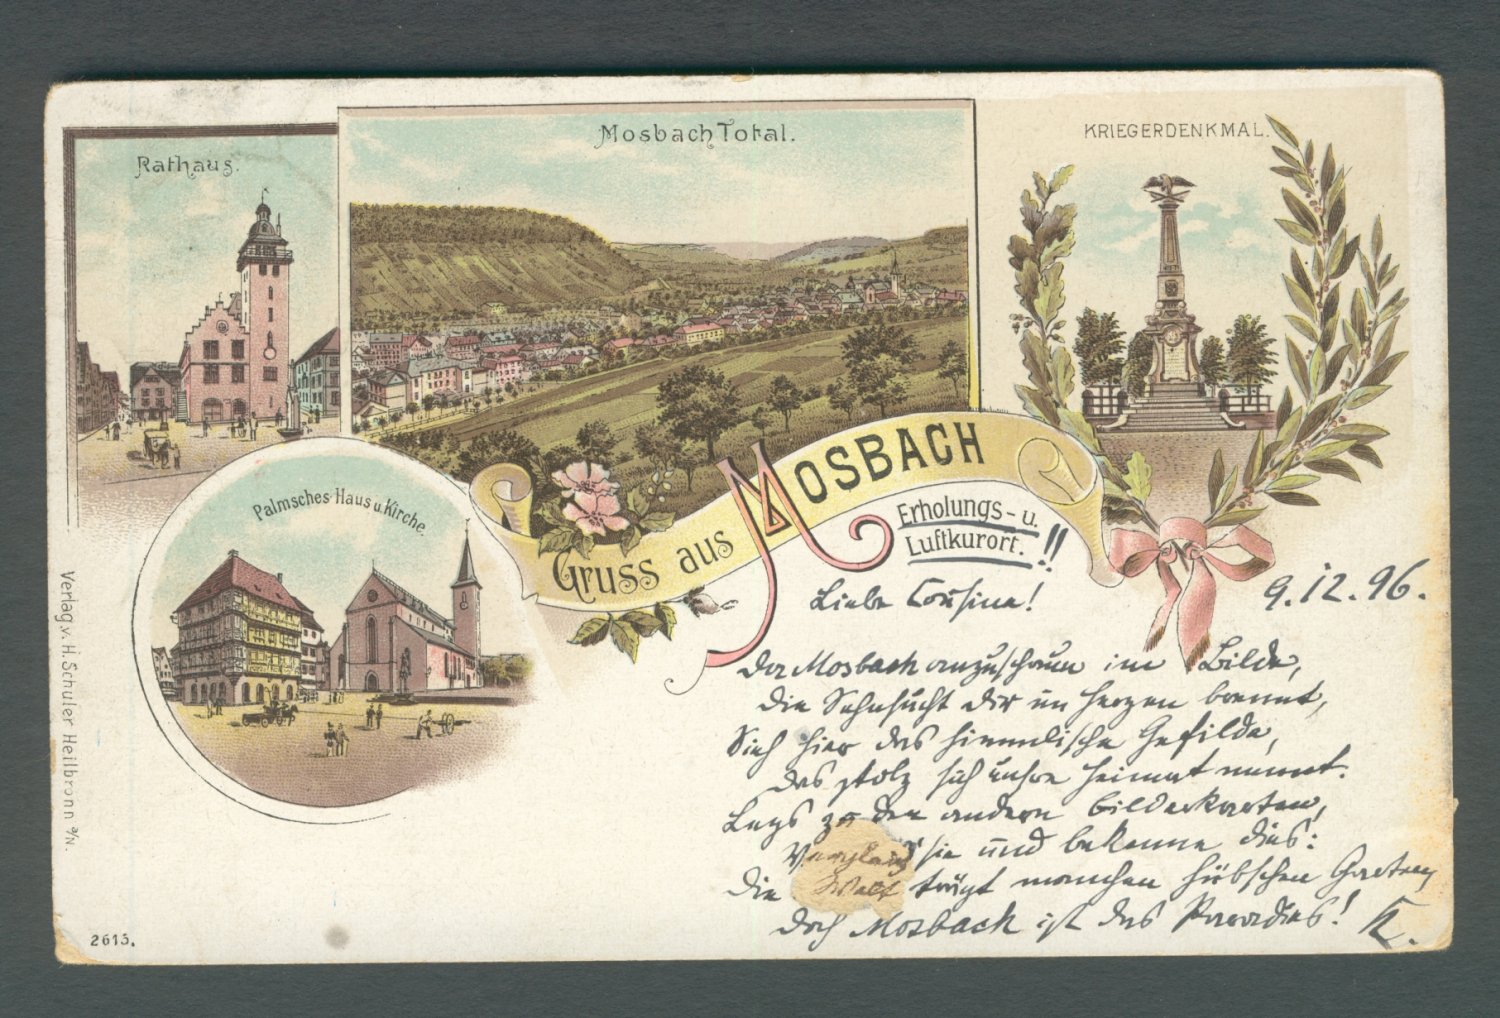 Rathaus.
Mosbach Total.
KRIEGERDENKMAL.
Palmsches Haus u. Kirche.
Gruss aus MOSBACH
Erholungs- u.
Luftkurort. !!
9.12.96.
Liebe Cousine!
Da Mosbach anzuschauen im Bilde,
die Sehnsucht Dir im Herzen brennt,
Sieh hier das himmlische Gefilde,
das stolz sich unsre Heimat nennt.
Leg's zu den andern Bilderkarten,
Vergleich sie und bekenne dies:
Die Welt trägt manchen hübschen Garten
doch Mosbach ist das Paradies! K.
Verlag v. H. Schuler Heilbronn a/N.
2615.